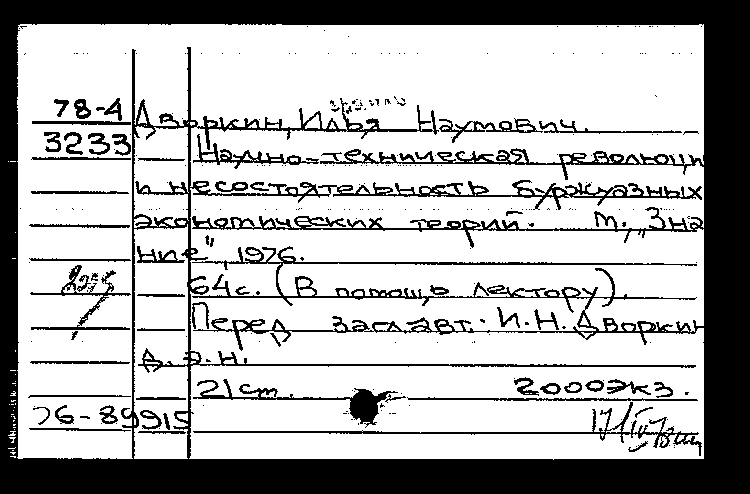 78-4
3233
Дворкин, Илья Наумович.
Научно-техническая революци
и несостоятельность буржуазных
экономических теорий. М., „Зна
ние", 1976.
64с. (В помощь лектору).
Перед загл. авт.: И.Н. Дворкин
д.э.н.
21 см. 2000экз.
76-89915